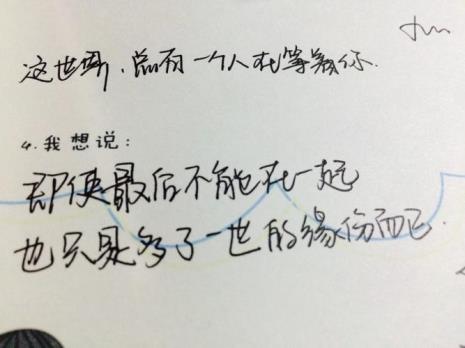 这世界，总有一个人在等着你.
4.我想说：
即使最后不能在一起
也只是多了一世的缘份而已.